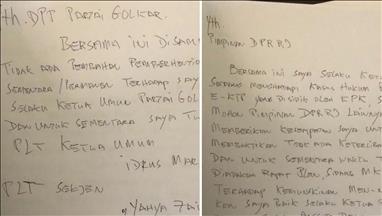 Yth. DPP Partai GOLKAR.
BERSAMA INI DISAM
TIDAK ADA PEMBAHAN PEMBERHENTIO
SEMENTARA/PERMANEN TERHADAP SAY
SELAKU KETUA UMUM PARTAI GOL
DAN UNTUK SEMENTARA SAYA TU
PLT KETUA UMUM
IDRUS MAR
PLT SEKJEN
YAHYA ZAI
Yth.
PIMPINAN DPR RI
BERSAMA INI SAYA SELAKU KET
SEDANG MENGHADAPI KASUS HUKUM
E-KTP YANG DISIDIK OLEH KPK,
MOHON PIMPINAN DPR RI LAINNYA
MEMBERIKAN KESEMPATAN SAYA UN
MEMBUKTIKAN TIDAK ADA KETERLIBA
DAN UNTUK SEMENTARA WAKTU
DIADAKAN RAPAT PLENO, SIDANG MK
TERHADAP KEMUNGKINAN MENON
KAN SAYA BAIK SELAKU KETUA